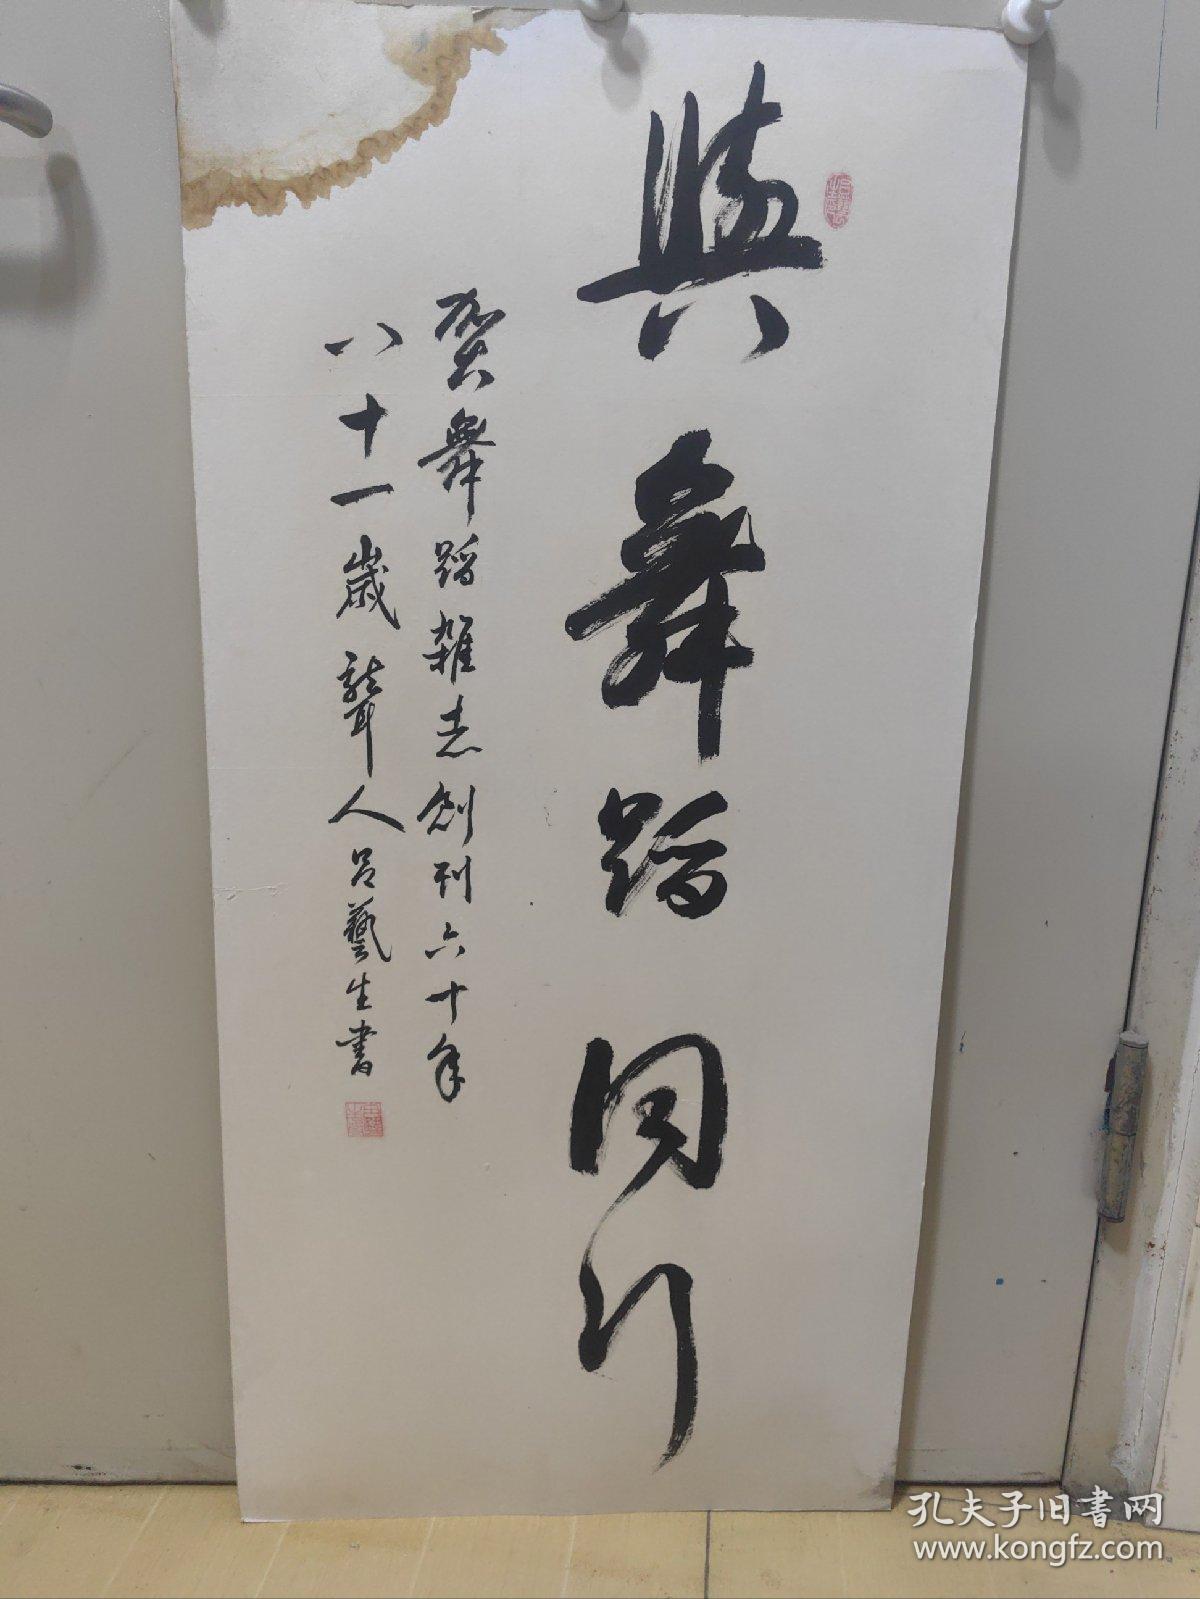 與舞蹈同行
賀舞蹈雜志創刊六十年
八十一歲聾人呂藝生書
孔夫子旧书网
www.kongfz.com